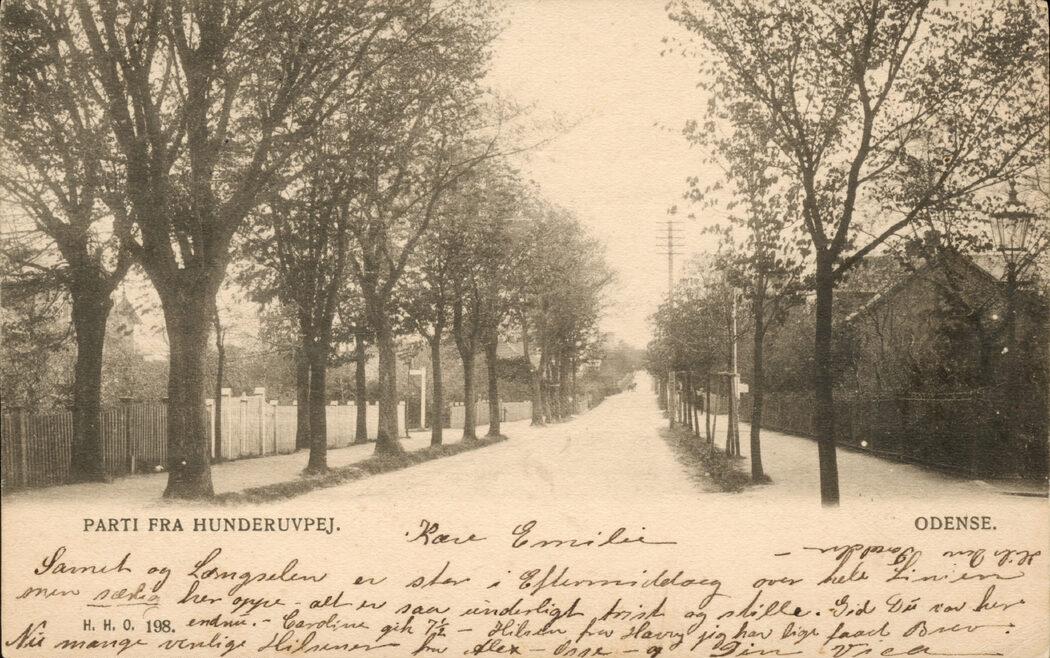 PARTI FRA HUNDERUVPEJ.
ODENSE.
Kære Emilie
Savnet og Længselen er stor i Eftermiddag over hele Linien
men særlig her oppe - alt er saa underligt trist og stille. Gid Du var her
H. H. O. 198.
endnu. - Caroline gik 7½ - Hilsen fra Harry, jeg har lige faaet Brev.
Nu mange venlige Hilsener fra Alex - Osse - og Din Vica